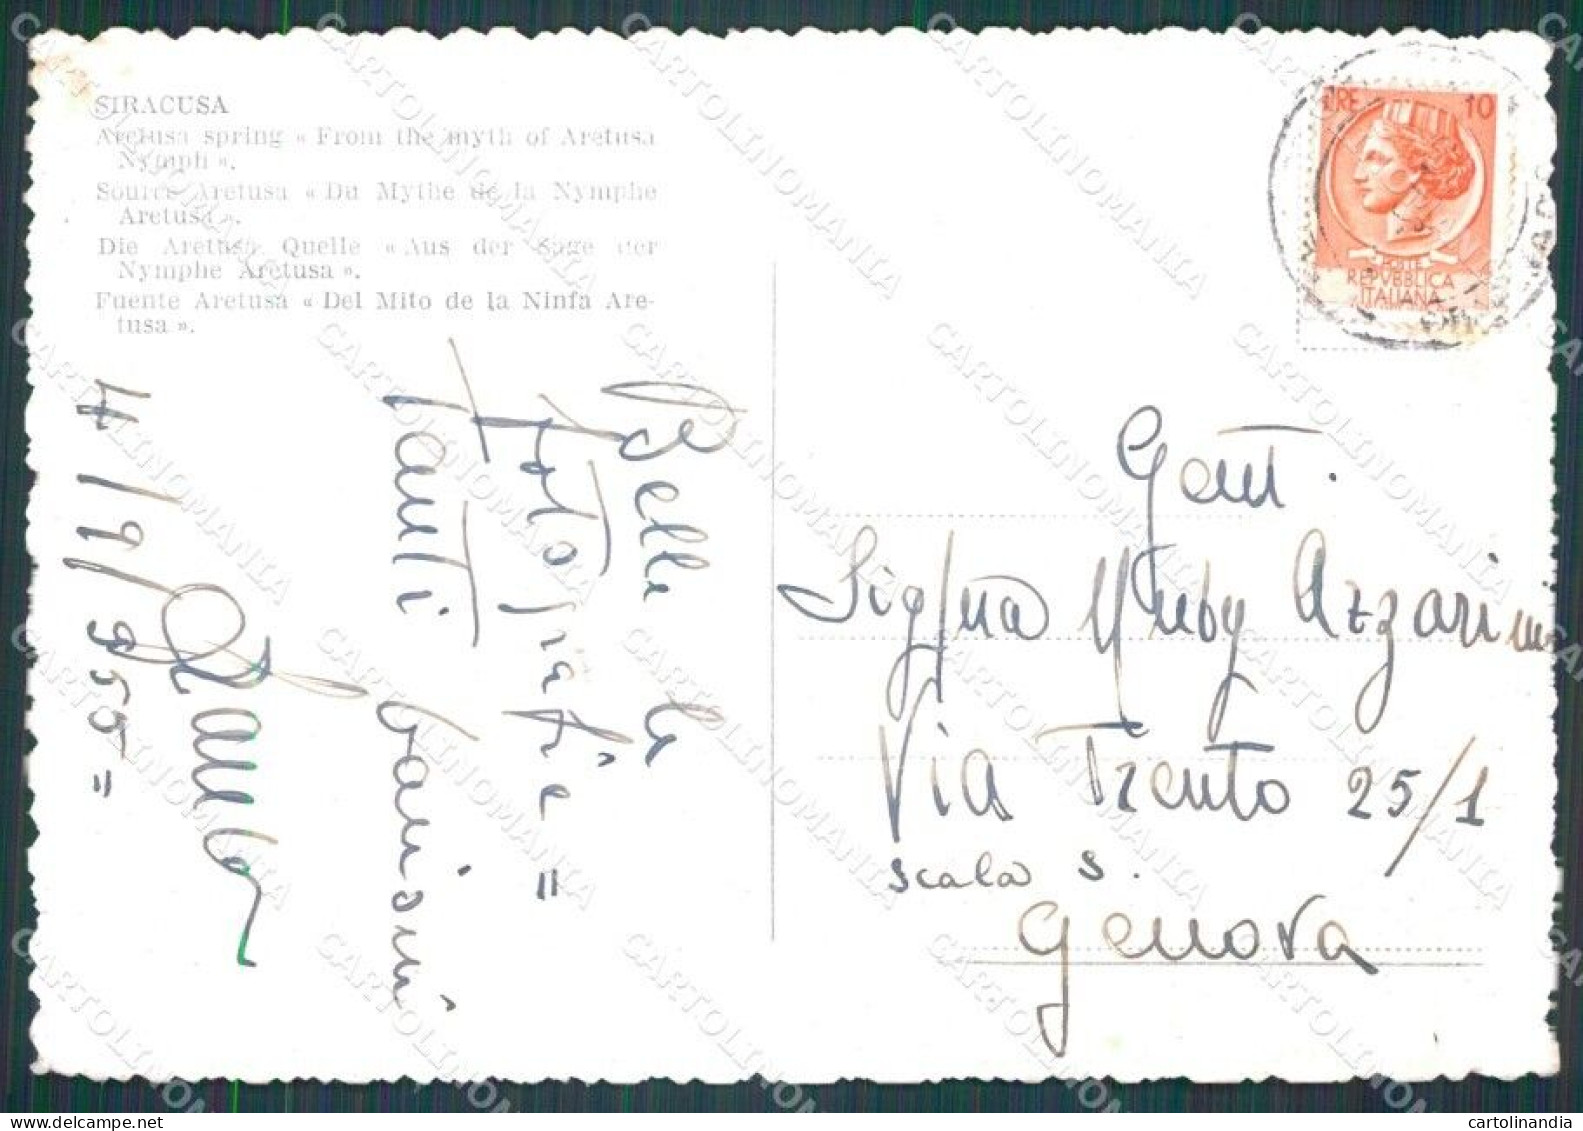 SIRACUSA
Aretusa spring « From the myth of Aretusa
Nymph ».
Source Aretusa « Du Mythe de la Nymphe
Aretusa ».
Die Aretusa Quelle « Aus der Sage der
Nymphe Aretusa ».
Fuente Aretusa « Del Mito de la Ninfa Are-
tusa ».
LIRE 10
POSTE
REPVBBLICA
ITALIANA
Belle le
fotografie =
Tanti
4/9/955=
Gent.
Sig/na Nuby Azzarini
Via Trento 25/1
scala s.
Genova
CARTOLINOMANIA
cartolinandia